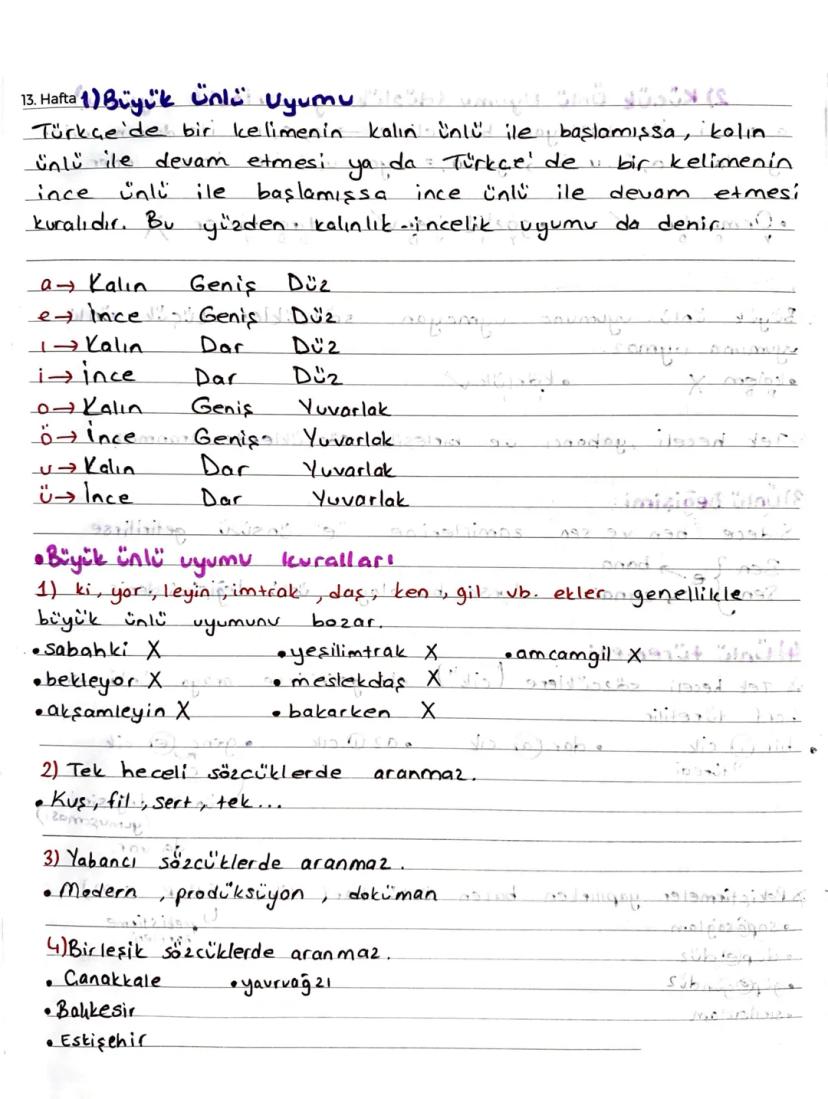 13. Hafta 1) Büyük ünlü uyumu
Türkçe'de bir kelimenin kalın ünlü ile başlamışsa, kalın
ünlü ile devam etmesi ya da Türkçe'de bir kelimenin
ince ünlü ile başlamışsa ince ünlü ile devam etmesi
kuralıdır. Bu yüzden kalınlık-incelik uyumu da denir.
a → Kalın Geniş Düz
e → İnce Geniş Düz
ı → Kalın Dar Düz
i → İnce Dar Düz
o → Kalın Geniş Yuvarlak
ö → İnce Geniş Yuvarlak
u → Kalın Dar Yuvarlak
ü → İnce Dar Yuvarlak
• Büyük ünlü uyumu kuralları
1) ki, yor, leyin, imtrak, daş, ken, gil vb. ekler genellikle
büyük ünlü uyumunu bozar.
• sabahki X • yeşilimtrak X • amcamgil X
• bekleyor X • meslekdaş X
• akşamleyin X • bakarken X
2) Tek heceli sözcüklerde aranmaz.
• Kuş, fil, sert, tek...
3) Yabancı sözcüklerde aranmaz.
• Modern, prodüksüyon, doküman
4) Birleşik sözcüklerde aranmaz.
• Çanakkale • yavruağzı
• Balıkesir
• Eskişehir